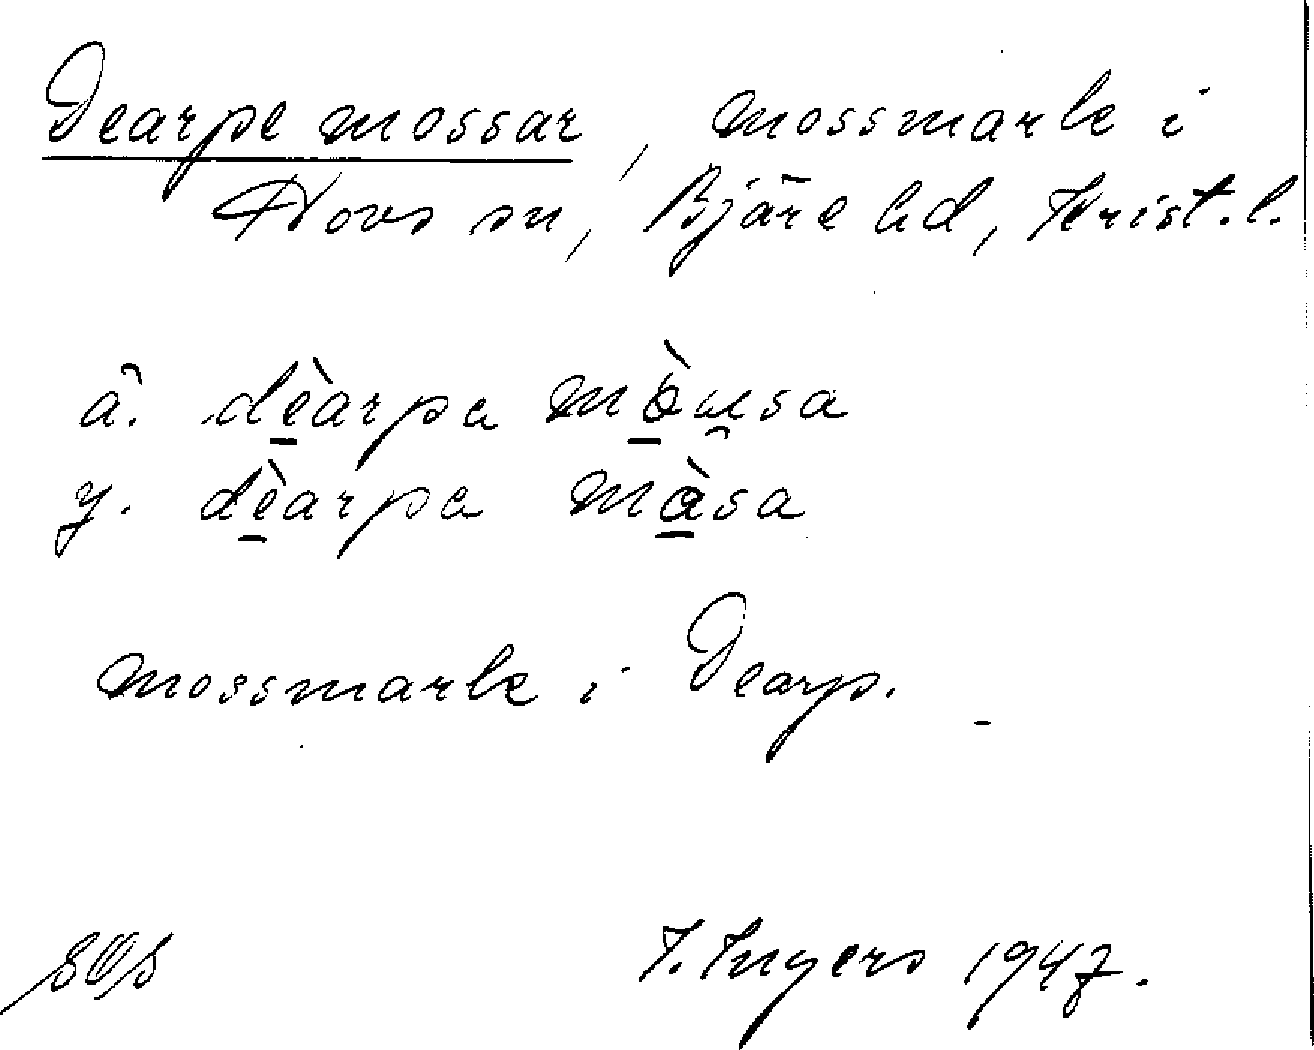 Dearpe mossar, mossmark i
Hovs sn, Bjäre hd, Krist. l.
ä. dèarpa mòusa
y. dèarpa måsa
mossmark i Dearp.
I. Ingers 1947.